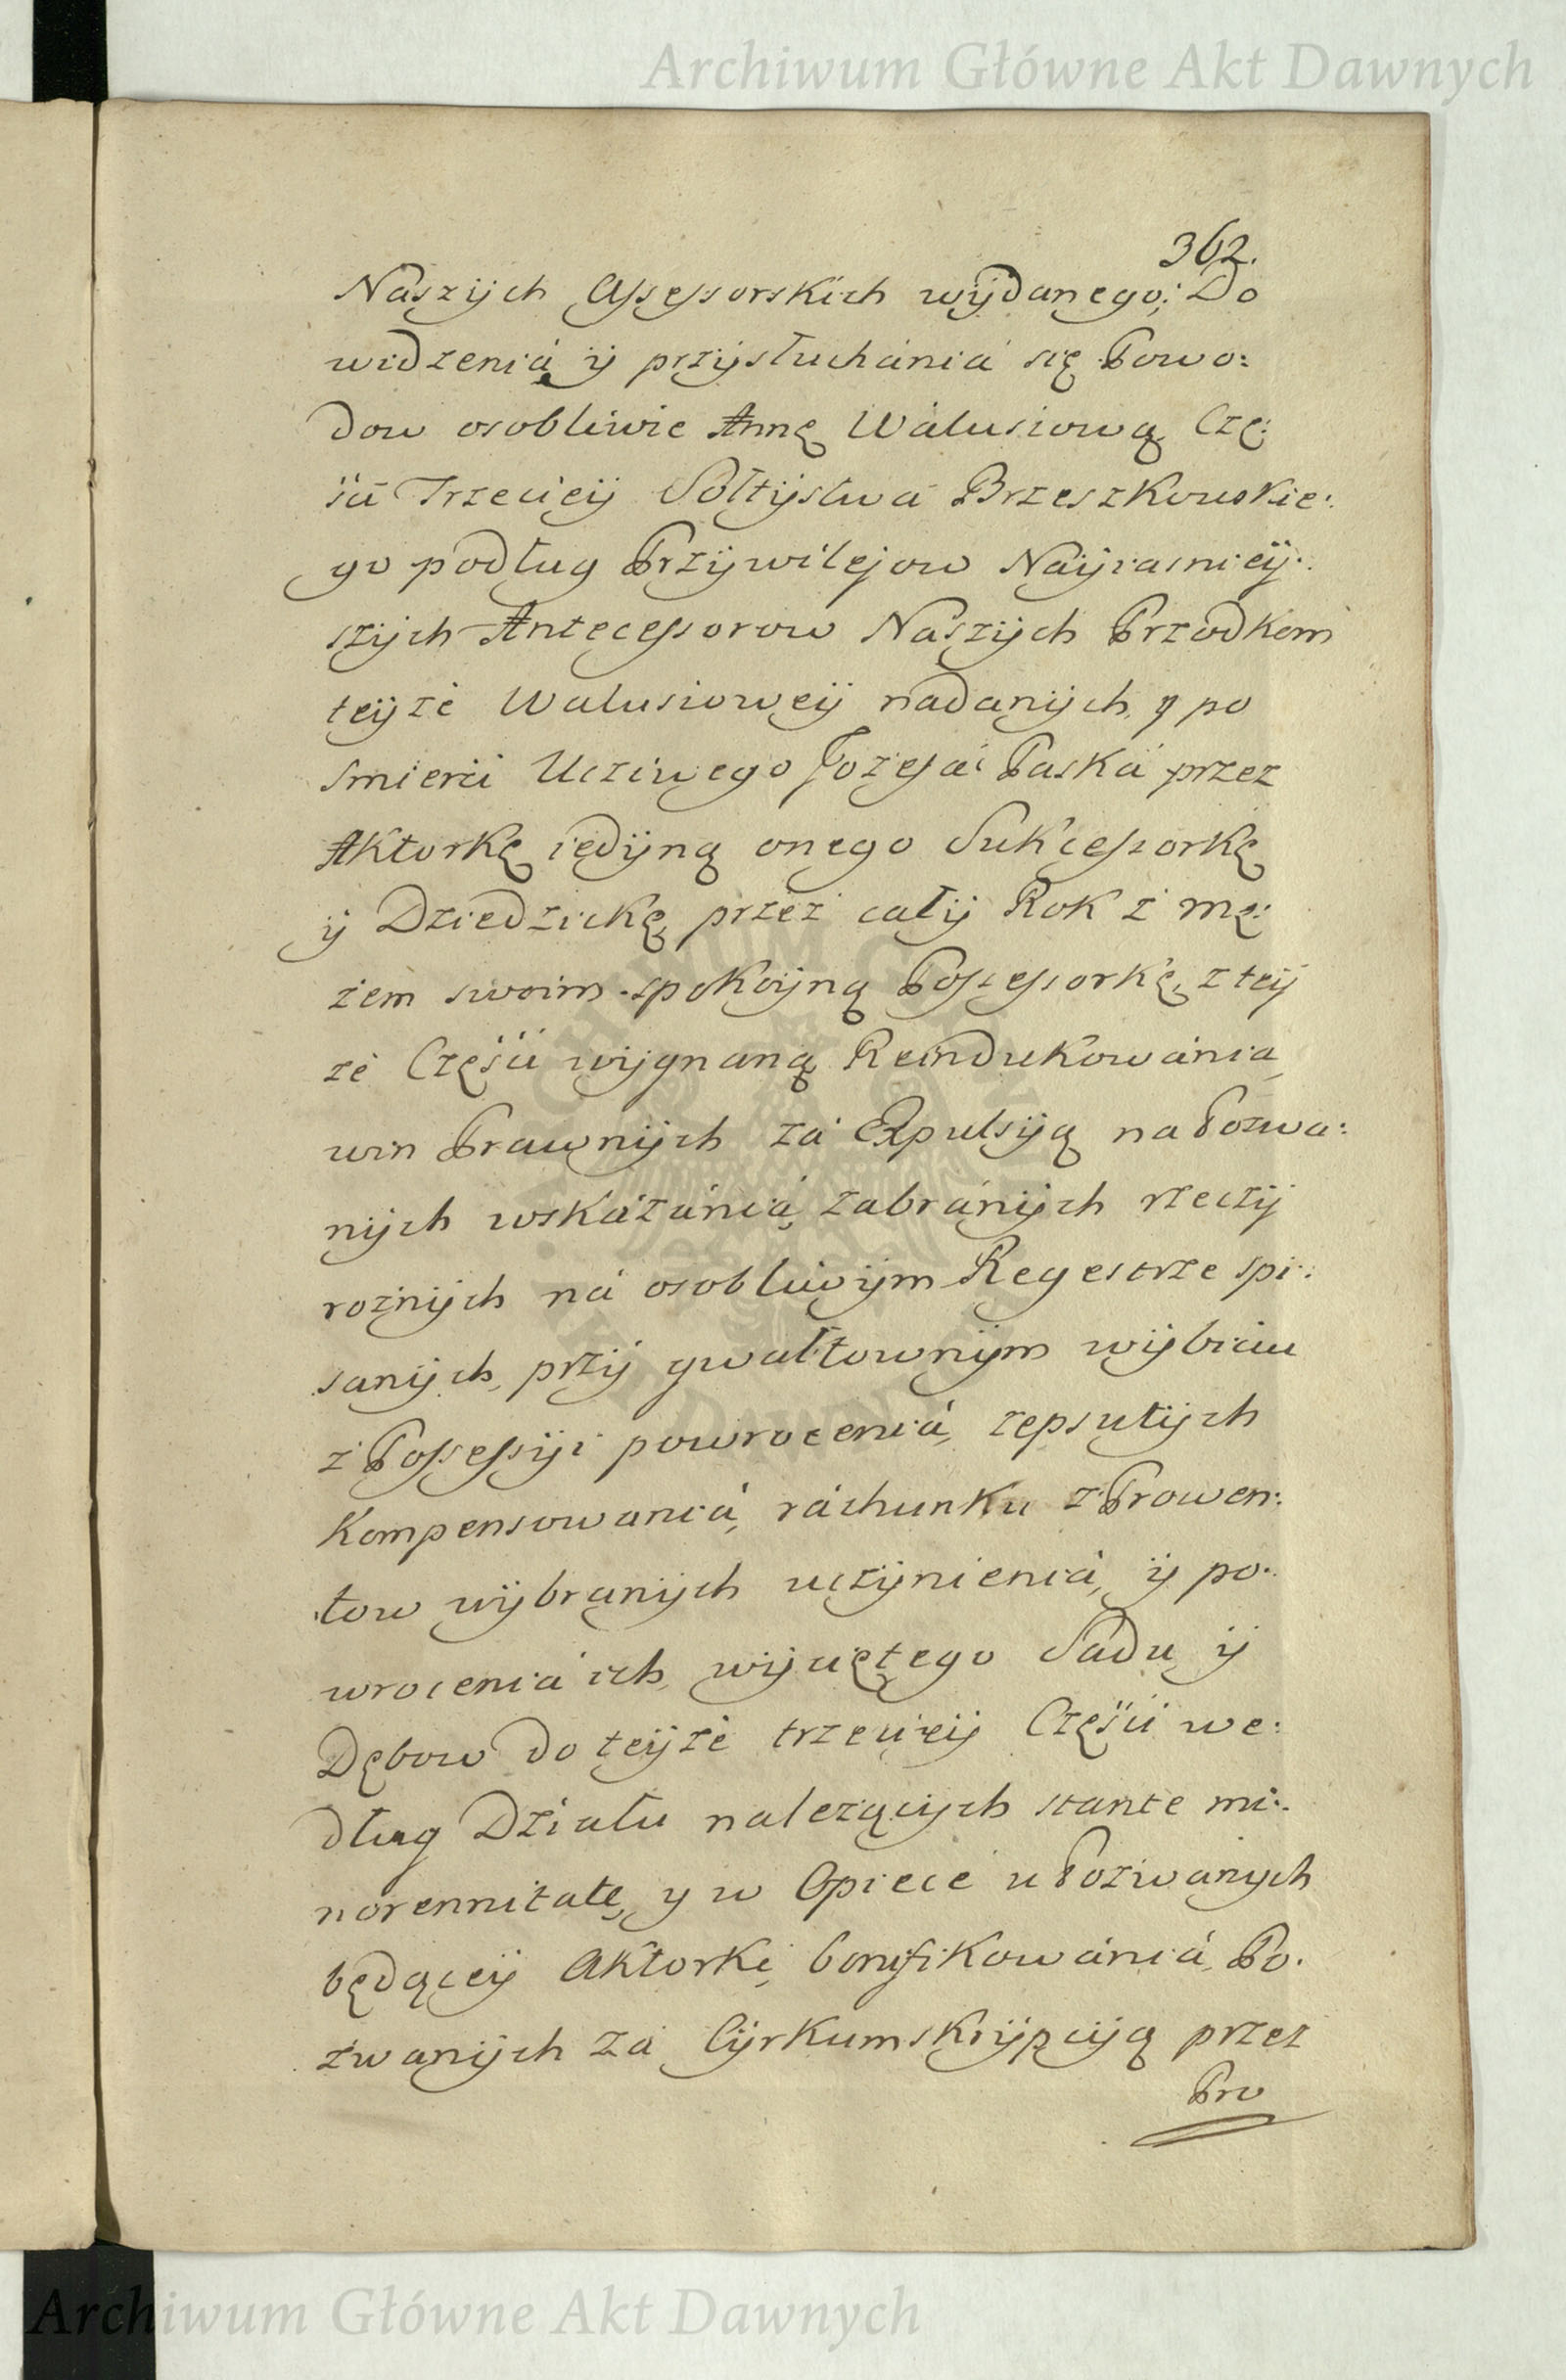 Archiwum Główne Akt Dawnych
362.
Naszych Assessorskich wydanego; Do
widzenia y przysłuchánia się Powo:
dow osobliwie Annę Walusiową Czę:
ści Trzeciey Sołtystwa Brzeszkowskie:
go podług Przywilejow Nayiasniey:
szych Antecessorow Naszych Przodkom
teyże Walusiowey nadanych, y po
smierci Uczciwego Jozefa Paska przez
Aktorkę iedyną onego Sukcessorkę
y Dziedziczkę, przez cały Rok z mę:
żem swoim spokoyną Possessorkę, z tey
że Części wygnaną Reindukowánia,
win Prawnych zá Expulsyą na Pozwa:
nych wskázánia, zabránych rzeczy
rożnych ná osobliwym Regestrze spi:
sanych, przy gwałtownym wybiciu
z Possessyi powrocenia, zepsutych
Kompensowania, ráchunku z Prowen:
tow wybranych uczynienia, y po:
wrocenia ich, wyciętego Sadu y
Dębow do teyże trzeciey Części we:
dług Działu należących stante mi:
norennitate, y w Opiece u Pozwanych
będącey Aktorki, bonifikowánia, Po:
zwanych zá Cyrkumskrypcyą przez
Pro
Archiwum Główne Akt Dawnych